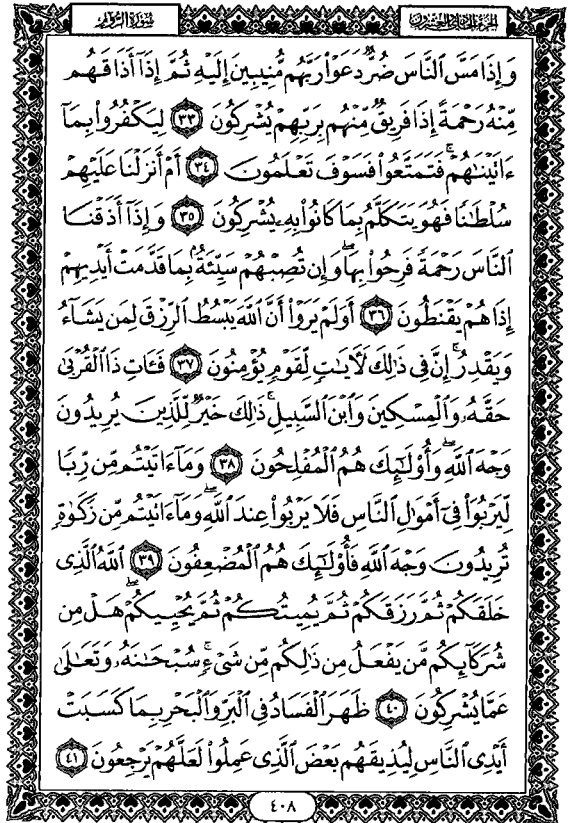 سُورَةُ الرُّومِ
الجزء الحادي والعشرون
وَإِذَا مَسَّ ٱلنَّاسَ ضُرٌّ دَعَوْا۟ رَبَّهُم مُّنِيبِينَ إِلَيْهِ ثُمَّ إِذَآ أَذَاقَهُم
مِّنْهُ رَحْمَةً إِذَا فَرِيقٌ مِّنْهُم بِرَبِّهِمْ يُشْرِكُونَ ٣٣ لِيَكْفُرُوا۟ بِمَآ
ءَاتَيْنَٰهُمْ ۚ فَتَمَتَّعُوا۟ فَسَوْفَ تَعْلَمُونَ ٣٤ أَمْ أَنزَلْنَا عَلَيْهِمْ
سُلْطَٰنًا فَهُوَ يَتَكَلَّمُ بِمَا كَانُوا۟ بِهِۦ يُشْرِكُونَ ٣٥ وَإِذَآ أَذَقْنَا
ٱلنَّاسَ رَحْمَةً فَرِحُوا۟ بِهَا ۖ وَإِن تُصِبْهُمْ سَيِّئَةٌۢ بِمَا قَدَّمَتْ أَيْدِيهِمْ
إِذَا هُمْ يَقْنَطُونَ ٣٦ أَوَلَمْ يَرَوْا۟ أَنَّ ٱللَّهَ يَبْسُطُ ٱلرِّزْقَ لِمَن يَشَآءُ
وَيَقْدِرُ ۚ إِنَّ فِى ذَٰلِكَ لَءَايَٰتٍ لِّقَوْمٍ يُؤْمِنُونَ ٣٧ فَـَٔاتِ ذَا ٱلْقُرْبَىٰ
حَقَّهُۥ وَٱلْمِسْكِينَ وَٱبْنَ ٱلسَّبِيلِ ۚ ذَٰلِكَ خَيْرٌ لِّلَّذِينَ يُرِيدُونَ
وَجْهَ ٱللَّهِ ۖ وَأُو۟لَٰٓئِكَ هُمُ ٱلْمُفْلِحُونَ ٣٨ وَمَآ ءَاتَيْتُم مِّن رِّبًا
لِّيَرْبُوَا۟ فِىٓ أَمْوَٰلِ ٱلنَّاسِ فَلَا يَرْبُوا۟ عِندَ ٱللَّهِ ۖ وَمَآ ءَاتَيْتُم مِّن زَكَوٰةٍ
تُرِيدُونَ وَجْهَ ٱللَّهِ فَأُو۟لَٰٓئِكَ هُمُ ٱلْمُضْعِفُونَ ٣٩ ٱللَّهُ ٱلَّذِى
خَلَقَكُمْ ثُمَّ رَزَقَكُمْ ثُمَّ يُمِيتُكُمْ ثُمَّ يُحْيِيكُمْ ۖ هَلْ مِن
شُرَكَآئِكُم مَّن يَفْعَلُ مِن ذَٰلِكُم مِّن شَىْءٍ ۚ سُبْحَٰنَهُۥ وَتَعَٰلَىٰ
عَمَّا يُشْرِكُونَ ٤٠ ظَهَرَ ٱلْفَسَادُ فِى ٱلْبَرِّ وَٱلْبَحْرِ بِمَا كَسَبَتْ
أَيْدِى ٱلنَّاسِ لِيُذِيقَهُم بَعْضَ ٱلَّذِى عَمِلُوا۟ لَعَلَّهُمْ يَرْجِعُونَ ٤١
٤٠٨